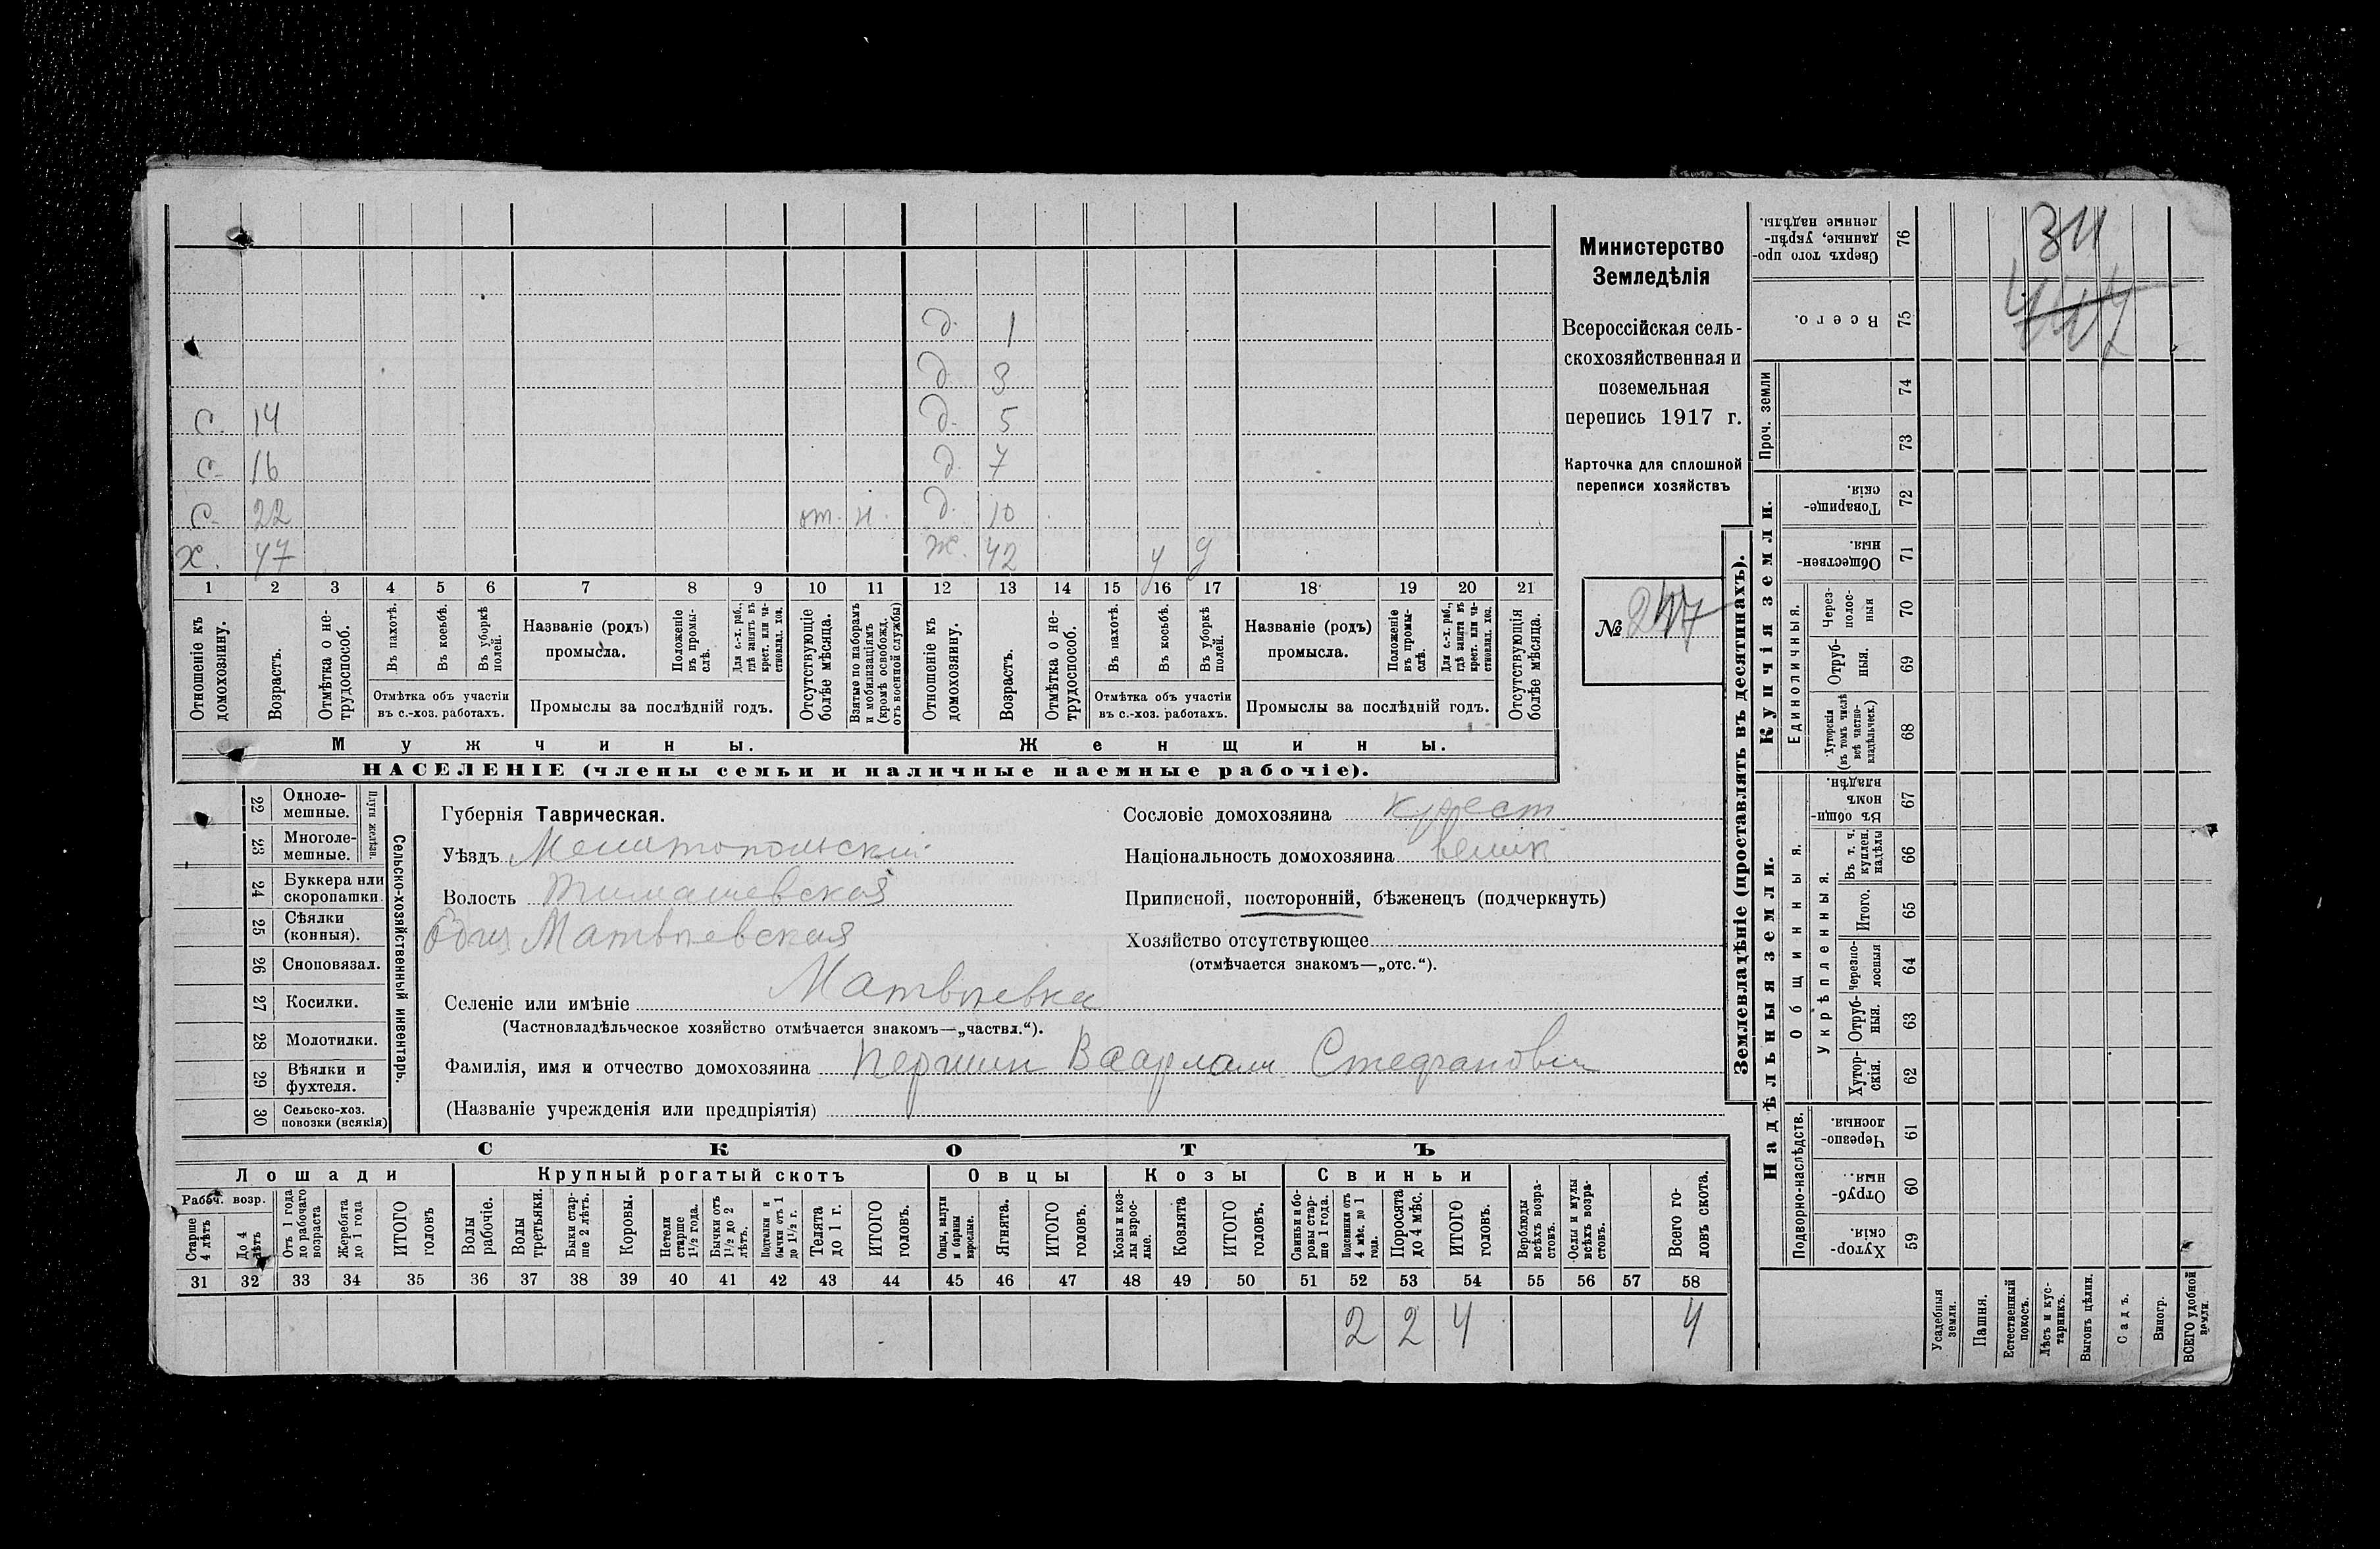 Министерство
Земледѣлія
Всероссійская сель-
скохозяйственная и
поземельная
перепись 1917 г.
Карточка для сплошной
переписи хозяйствъ
№ 247
34
447
д. 1
д 3
с. 14 д. 5
с. 16 д. 7
с. 22 от. н. д. 10
х. 47 ж. 42 у у
1 2 3 4 5 6 7 8 9 10 11 12 13 14 15 16 17 18 19 20 21
Отношеніе къ домохозяину.
Возрастъ.
Отмѣтка о не-трудоспособ.
Въ пахотѣ.
Въ косьбѣ.
Въ уборкѣ полей.
Отмѣтка объ участіи въ с.-хоз. работахъ.
Названіе (родъ) промысла.
Положеніе въ промы-слѣ.
Для с.-х. раб., гдѣ занятъ въ крест. или ча-стновлад. хоз.
Промыслы за послѣдній годъ.
Отсутствующіе болѣе мѣсяца.
Взятые по наборамъ и мобилизаціямъ (кромѣ освобожд. отъ военной службы)
Отношеніе къ домохозяину.
Возрастъ.
Отмѣтка о не-трудоспособ.
Въ пахотѣ.
Въ косьбѣ.
Въ уборкѣ полей.
Отмѣтка объ участіи въ с.-хоз. работахъ.
Названіе (родъ) промысла.
Положеніе въ промы-слѣ.
Для с.-х. раб., гдѣ занята въ крест. или ча-стновлад. хоз.
Промыслы за послѣдній годъ.
Отсутствующія болѣе мѣсяца.
Мужчины. Женщины.
НАСЕЛЕНІЕ (члены семьи и наличные наемные рабочіе).
22 Одноле-мешные.
23 Многоле-мешные.
Плуги желѣзн.
24 Буккера или скоропашки.
25 Сѣялки (конныя).
26 Сноповязал.
27 Косилки.
28 Молотилки.
29 Вѣялки и фухтеля.
30 Сельско-хоз. повозки (всякія)
Сельско-хозяйственный инвентарь.
Губернія Таврическая.
Уѣздъ Мелитопольскій
Волость Тимашевская
Общ Матвѣевская
Сословіе домохозяина крест
Національность домохозяина велик
Приписной, посторонній, бѣженецъ (подчеркнуть)
Хозяйство отсутствующее
(отмѣчается знакомъ—„отс.“).
Селеніе или имѣніе Матвѣевка
(Частновладѣльческое хозяйство отмѣчается знакомъ—„частвл.“).
Фамилія, имя и отчество домохозяина Першин Ваарлам Стефанович
(Названіе учрежденія или предпріятія)
СКОТЪ
Лошади Крупный рогатый скотъ Овцы Козы Свиньи
Рабоч. возр.
Старше 4 лѣтъ
До 4 лѣтъ
Отъ 1 года до рабочаго возраста
Жеребята до 1 года
ИТОГО головъ
Волы рабочіе.
Волы третьяки.
Быки стар-ше 2 лѣтъ.
Коровы.
Нетели старше 1½ года.
Бычки отъ 1½ до 2 лѣтъ.
Подтелки и бычки отъ 1 до 1½ г.
Телята до 1 г.
ИТОГО головъ.
Овцы, валухи и бараны взрослые.
Ягнята.
ИТОГО головъ.
Козы и коз-лы взрос-лые.
Козлята
ИТОГО головъ.
Свиньи и бо-ровы стар-ше 1 года.
Подсвинки отъ 4 мѣс. до 1 года.
Поросята до 4 мѣс.
ИТОГО головъ.
Верблюды всѣхъ возра-стовъ.
Ослы и мулы всѣхъ возра-стовъ.
Всего го-ловъ скота.
31 32 33 34 35 36 37 38 39 40 41 42 43 44 45 46 47 48 49 50 51 52 53 54 55 56 57 58
2 2 4 4
Землевладѣніе (проставлять въ десятинахъ).
Купчія земли.
Надѣльныя земли.
Сверхъ того про-данные, укрѣп-ленные надѣлы. 76
Всего. 75
Проч. земли 74
73
Товарище-скія. 72
Обществен-ныя. 71
Единоличныя.
Через-полос-ныя 70
Отруб-ныя. 69
Хуторскія (въ томъ числѣ всѣ частно-владѣльческ.) 68
Общинныя.
Въ общин-номъ владѣн. 67
Укрѣпленныя.
Въ т. ч. куплен. надѣлы 66
Итого. 65
Черезпо-лосныя 64
Отруб-ныя. 63
Хутор-скія. 62
Подворно-наслѣдств.
Черезпо-лосныя. 61
Отруб-ныя. 60
Хутор-скія. 59
Усадебныя земли.
Пашня.
Естественный покосъ.
Лѣсъ и кус-тарникъ.
Выгонъ цѣлин.
Садъ.
Виногр.
ВСЕГО удобной земли.